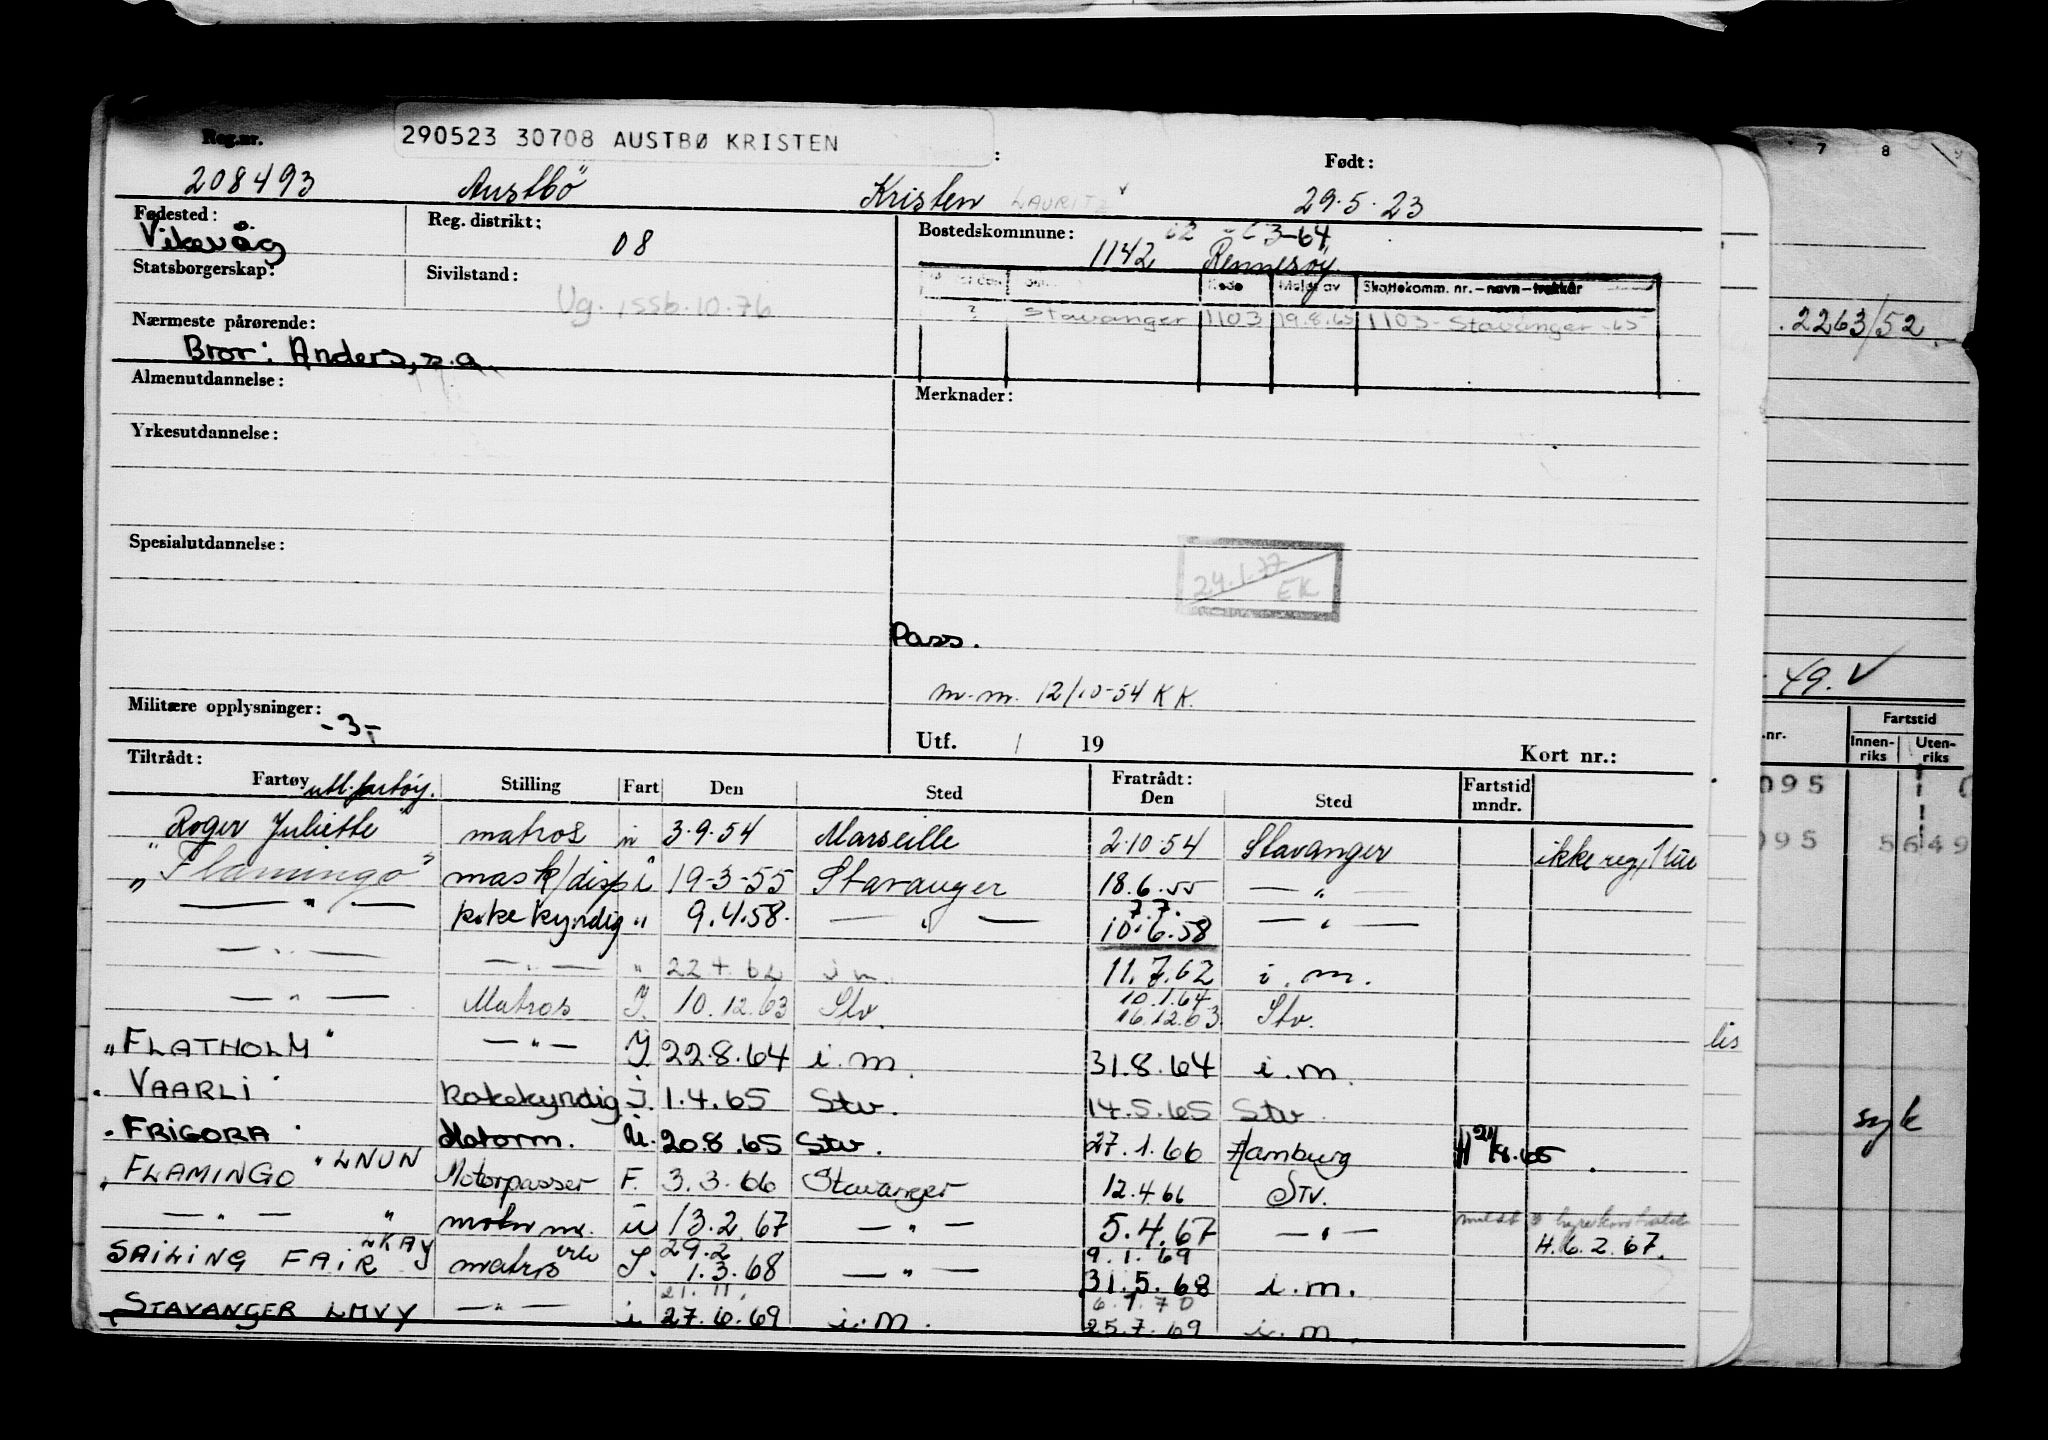 Reg.nr. 290523 30708 AUSTBØ KRISTEN : Født:
208493 Austbö Kristen LAURITZ 29.5.23
Fødested: Reg. distrikt: Bostedskommune: -64
Vikevåg 08 1142 Rennesøy
Statsborgerskap: Sivilstand:
Skattekomm. nr.-navn-trekkår
Ug. issb. 10.76
? Stavanger 1103 19.8.65 1103-Stavanger -65
Nærmeste pårørende:
Bror: Anders, s.a.
Almenutdannelse: Merknader:
Yrkesutdannelse:
Spesialutdannelse:
24.1.77 EK
Pass.
m.m. 12/10-54 KK.
Militære opplysninger:
-3-
Utf. / 19 Kort nr.:
Tiltrådt: Fratrådt:
Fartøy utl. fartöy. Stilling Fart Den Sted Den Sted Fartstid mndr.
"Roger Juliette" matros 3.9.54 Marseille 2.10.54 Stavanger ikke reg.
"Flamingo" mask/disp i 19-3-55 Stavanger 18.6.55 — " —
— " — kokekyndig " 9.4.58. — " — 7.7. 10.6.58 — " —
— " — — " — " i.m. 11.7.62 i.m.
— " — Matros I. 10.12.63 Stv. 10.1.64 16.12.63 Stv.
"FLATHOLM" — " — I 22.8.64 i.m. 31.8.64 i.m.
"VAARLI" kokekyndig I. 1.4.65 Stv. 14.5.65 Stv.
"FRIGORA" Motorm. U. 20.8.65 Stv. 27.1.66 Hamburg
"FLAMINGO" LNUN Motorpasser F. 3.3.66 Stavanger 12.4.66 STV.
— " — " motorm. u 13.2.67 — " — 5.4.67 — " — H. 6.2.67.
SAILING FAIR LKAY matros I. 29.2 1.3.68 — " — 9.1.69 31.5.68 i.m.
STAVANGER LMVY — " — i 21.11. 27.6.69 i.m. 6.1.70 25.7.69 i.m.
7 8
.2263/52
49. V
.nr. Fartstid
Innen-riks Uten-riks
095
095 5649
lis
syk